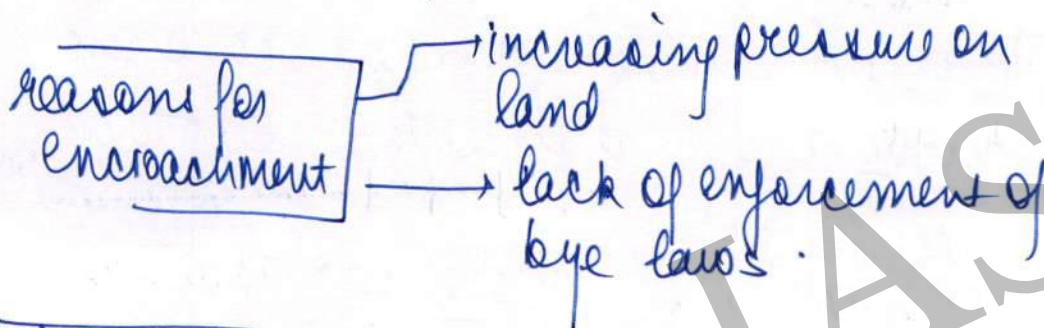 reasons for
encroachment
increasing pressure on
land
lack of enforcement of
bye laws.
IAS